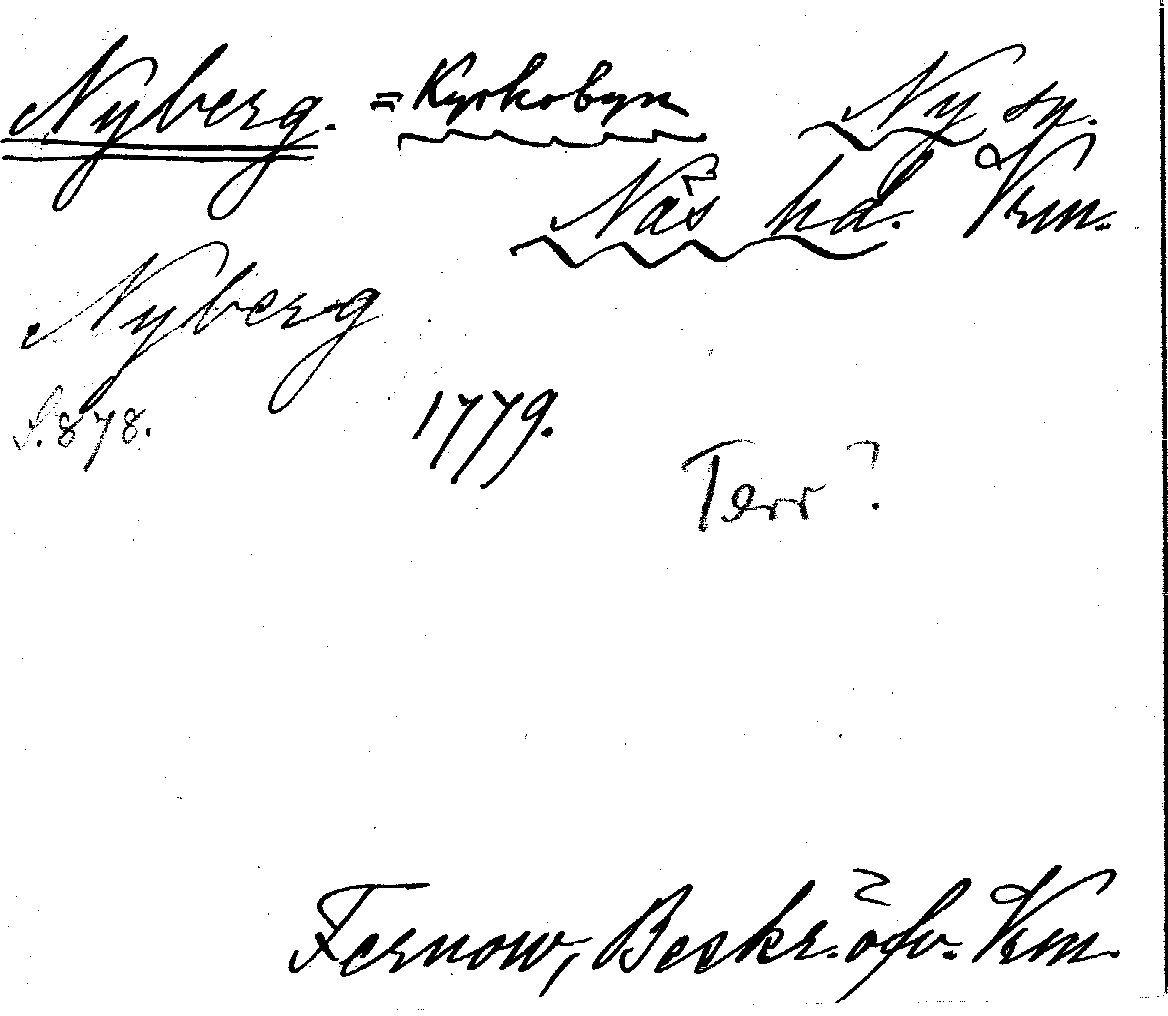 Nyberg. = Kyrkobyn Ny sn.
Näs hd. Vrm.
Nyberg
S. 878. 1779.
Terr?
Fernow, Beskr. öfv. Vrm.